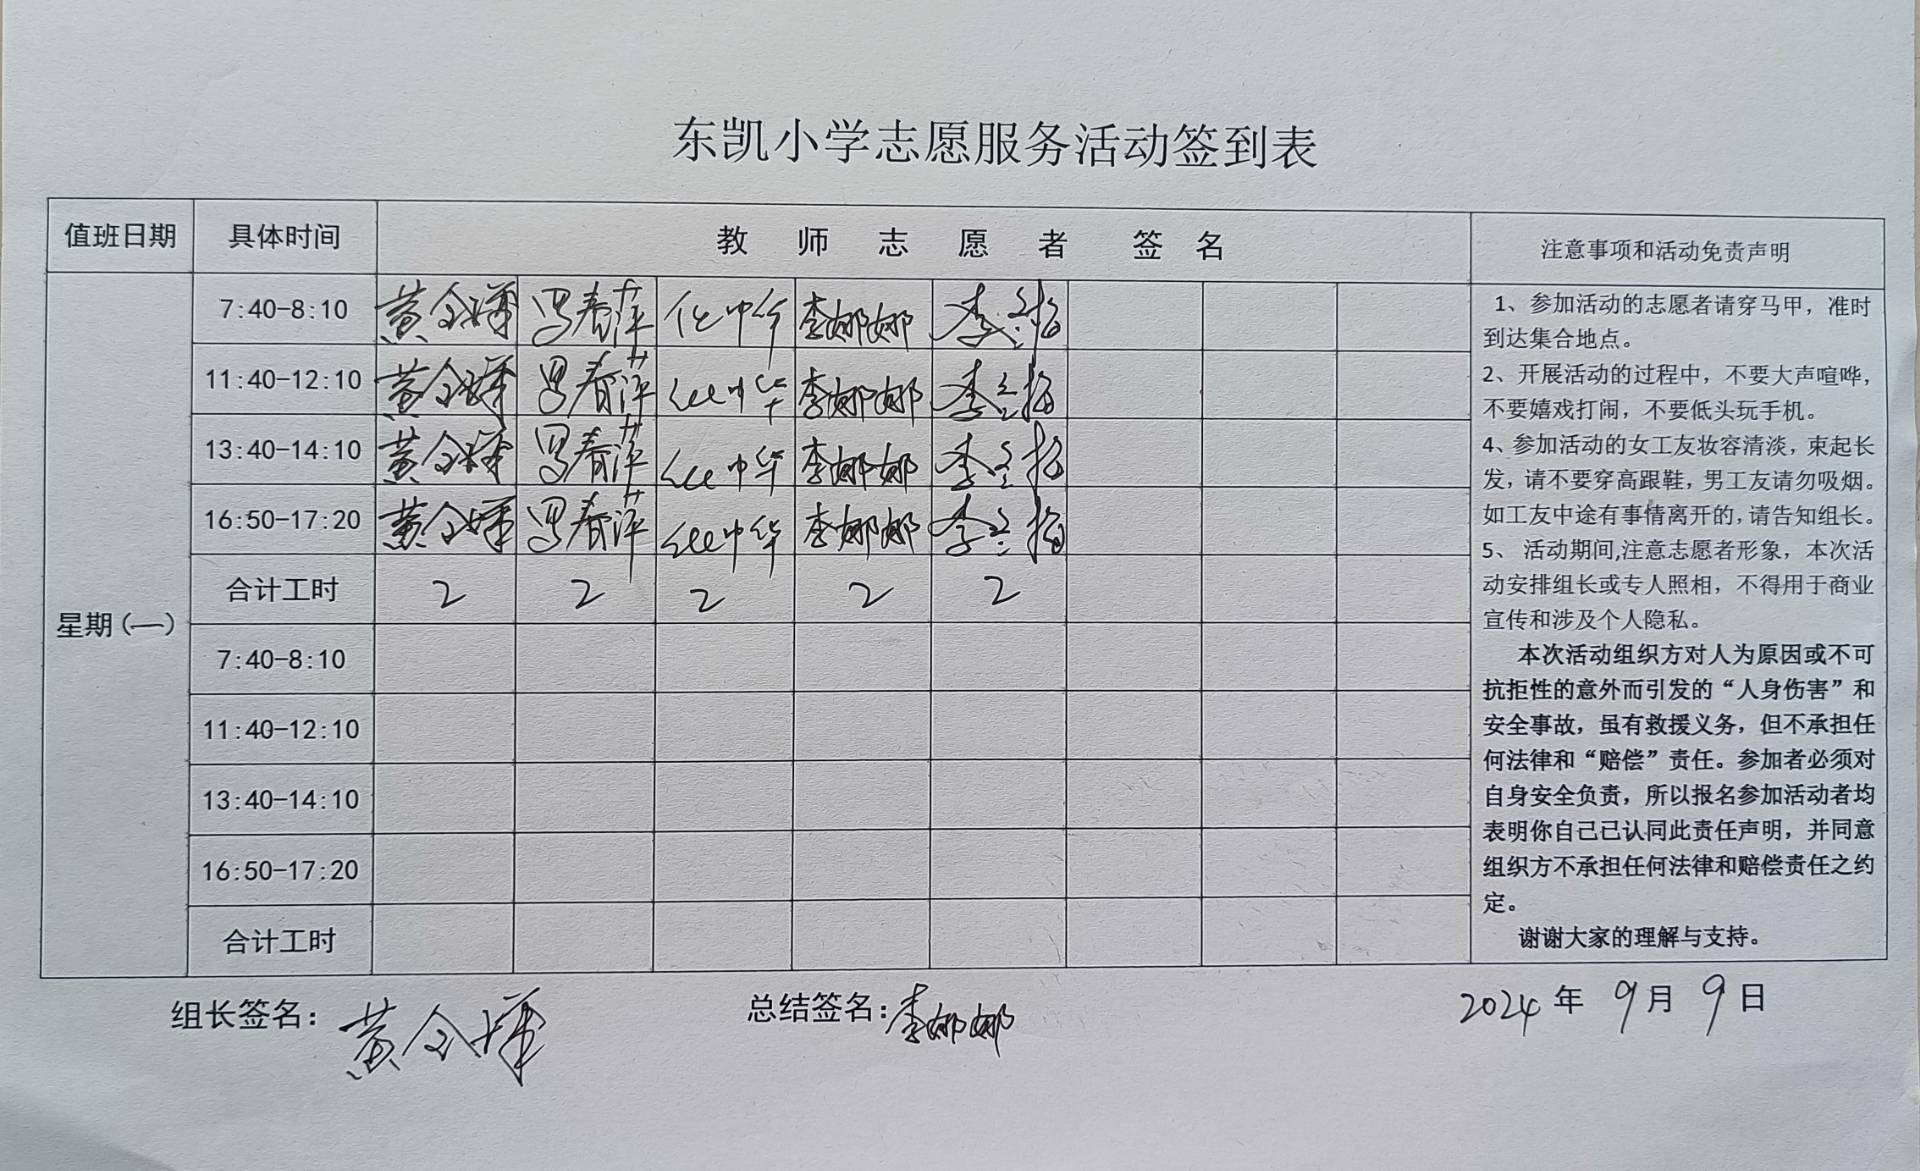 东凯小学志愿服务活动签到表
值班日期 具体时间 教师志愿者签名 注意事项和活动免责声明
星期(一)
7:40-8:10 黄 春萍 中华 李娜娜 李
11:40-12:10 黄 春萍 中华 李娜娜 李
13:40-14:10 黄 春萍 中华 李娜娜 李
16:50-17:20 黄 春萍 中华 李娜娜 李
合计工时 2 2 2 2 2
7:40-8:10
11:40-12:10
13:40-14:10
16:50-17:20
合计工时
1、参加活动的志愿者请穿马甲，准时
到达集合地点。
2、开展活动的过程中，不要大声喧哗，
不要嬉戏打闹，不要低头玩手机。
4、参加活动的女工友妆容清淡，束起长
发，请不要穿高跟鞋，男工友请勿吸烟。
如工友中途有事情离开的，请告知组长。
5、 活动期间,注意志愿者形象，本次活
动安排组长或专人照相，不得用于商业
宣传和涉及个人隐私。
本次活动组织方对人为原因或不可
抗拒性的意外而引发的“人身伤害”和
安全事故，虽有救援义务，但不承担任
何法律和“赔偿”责任。参加者必须对
自身安全负责，所以报名参加活动者均
表明你自己已认同此责任声明，并同意
组织方不承担任何法律和赔偿责任之约
定。
谢谢大家的理解与支持。
组长签名：黄 总结签名：李娜娜 2024年9月9日